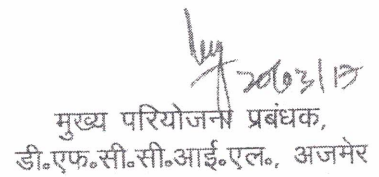 20/03/13
मुख्य परियोजना प्रबंधक,
डी॰एफ॰सी॰सी॰आई॰एल॰, अजमेर